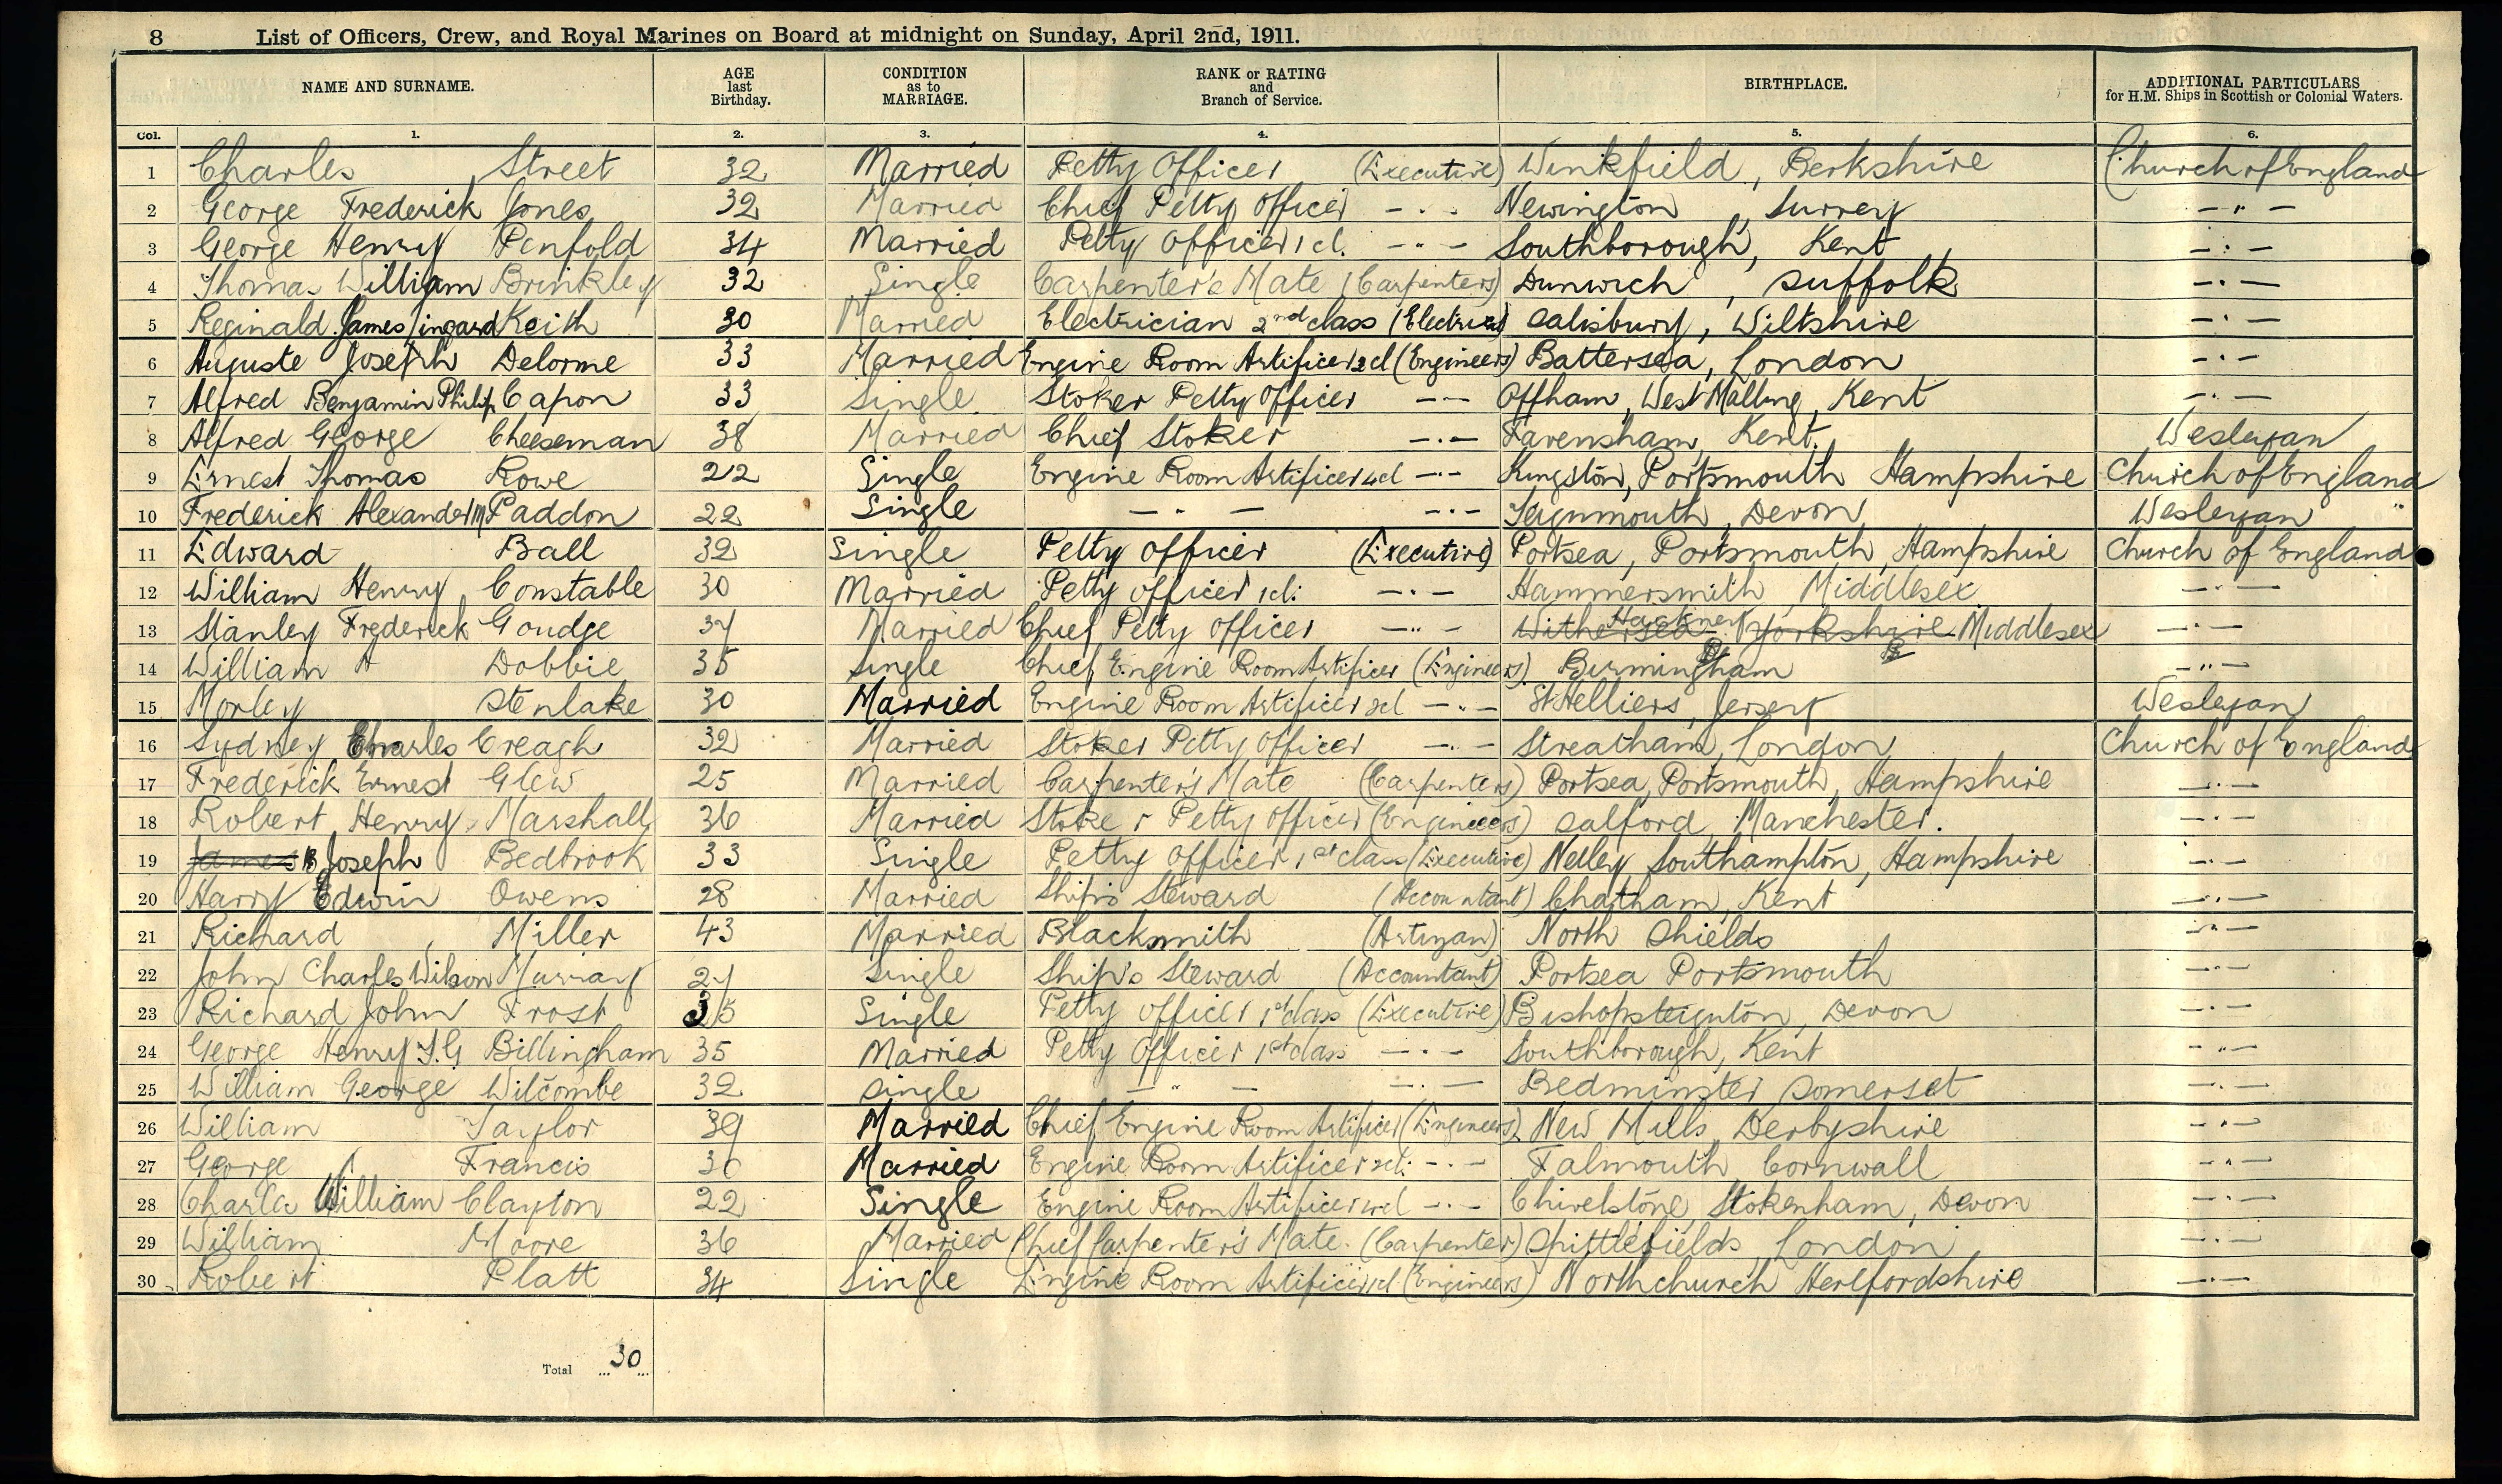 8 List of Officers, Crew, and Royal Marines on Board at midnight on Sunday, April 2nd, 1911.
NAME AND SURNAME. AGE last Birthday. CONDITION as to MARRIAGE. RANK or RATING and Branch of Service. BIRTHPLACE. ADDITIONAL PARTICULARS for H.M. Ships in Scottish or Colonial Waters.
Col. 1. 2. 3. 4. 5. 6.
1 Charles Street 32 Married Petty Officer (Executive) Winkfield, Berkshire Church of England
2 George Frederick Jones 32 Married Chief Petty Officer - " - Newington, Surrey - " -
3 George Henry Penfold 34 Married Petty Officer 1 cl. - " - Southborough, Kent - " -
4 Thomas William Brinkley 32 Single Carpenter's Mate (Carpenters) Dunwich, Suffolk - " -
5 Reginald James Lingard Keith 30 Married Electrician 2nd class (Electrical) Salisbury, Wiltshire - " -
6 Auguste Joseph Delorme 33 Married Engine Room Artificer 2 cl (Engineers) Battersea, London - " -
7 Alfred Benjamin Philip Capon 33 Single Stoker Petty Officer - " - Offham, West Malling, Kent - " -
8 Alfred George Cheeseman 38 Married Chief Stoker - " - Faversham, Kent. Wesleyan
9 Ernest Thomas Rowe 22 Single Engine Room Artificer 4 cl - " - Kingston, Portsmouth Hampshire Church of England
10 Frederick Alexander M Paddon 22 Single - " - - " - Teignmouth, Devon Wesleyan "
11 Edward Ball 32 Single Petty Officer (Executive) Portsea, Portsmouth, Hampshire Church of England
12 William Henry Constable 30 Married Petty Officer 1 cl: - " - Hammersmith, Middlesex - " -
13 Stanley Frederick Goudge 37 Married Chief Petty Officer - " - Withersea Hackney Yorkshire Middlesex - " -
14 William A Dobbie 35 Single Chief Engine Room Artificer (Engineers) Birmingham - " -
15 Morley Stenlake 30 Married Engine Room Artificer 2cl - " - St Helliers, Jersey Wesleyan
16 Sydney Charles Creagh 32 Married Stoker Petty Officer - " - Streatham, London Church of England
17 Frederick Ernest Glew 25 Married Carpenter's Mate (Carpenters) Portsea, Portsmouth, Hampshire - " -
18 Robert Henry Marshall 36 Married Stoker Petty Officer (Engineers) Salford, Manchester. - " -
19 James B Joseph Bedbrook 33 Single Petty Officer 1st class (Executive) Netley Southampton, Hampshire - " -
20 Harry Edwin Owens 28 Married Ship's Steward (Accountant) Chatham, Kent - " -
21 Richard Miller 43 Married Blacksmith (Artizan) North Shields - " -
22 John Charles Wilson Murray 27 Single Ship's Steward (Accountant) Portsea Portsmouth - " -
23 Richard John Frost 35 Single Petty Officer 1st class (Executive) Bishopsteignton, Devon - " -
24 George Henry T. G Billingham 35 Married Petty Officer 1st class - " - Southborough, Kent - " -
25 William George Wilcombe 32 Single - " - - " - Bedminster Somerset - " -
26 William Taylor 39 Married Chief Engine Room Artificer (Engineers) New Mills, Derbyshire - " -
27 George Francis 30 Married Engine Room Artificer 2cl: - " - Falmouth Cornwall - " -
28 Charles William Clayton 22 Single Engine Room Artificer 4cl - " - Chivelstone, Stokenham, Devon - " -
29 William Moore 36 Married Chief Carpenter's Mate. (Carpenter) Spittlefields, London - " -
30 Robert Platt 34 Single Engine Room Artificer 1cl (Engineers) Northchurch Hertfordshire - " -
Total ... 30 ...